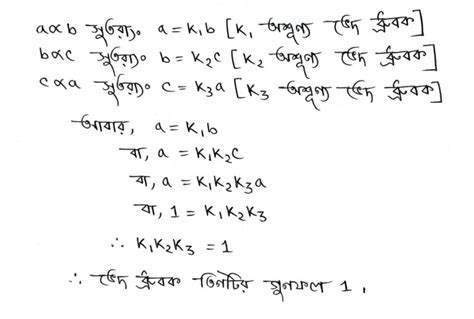 a∝b সুতরাং a = K₁b [K₁ অশূন্য ভেদ ধ্রুবক]
b∝c সুতরাং b = K₂c [K₂ অশূন্য ভেদ ধ্রুবক]
c∝a সুতরাং c = K₃a [K₃ অশূন্য ভেদ ধ্রুবক]
আবার, a = K₁b
বা, a = K₁K₂c
বা, a = K₁K₂K₃a
বা, 1 = K₁K₂K₃
∴ K₁K₂K₃ = 1
∴ ভেদ ধ্রুবক তিনটির গুনফল 1 ,